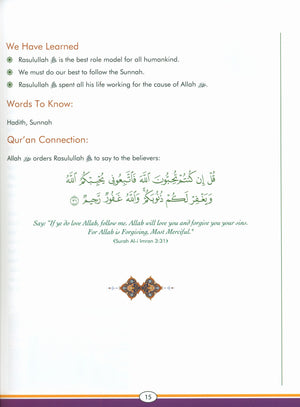 We Have Learned
Rasulullah ﷺ is the best role model for all humankind.
We must do our best to follow the Sunnah.
Rasulullah ﷺ spent all his life working for the cause of Allah
Words To Know:
Hadith, Sunnah
Qur'an Connection:
Allah orders Rasulullah ﷺ to say to the believers:
قُلْ إِن كُنتُمْ تُحِبُّونَ ٱللَّهَ فَٱتَّبِعُونِى يُحْبِبْكُمُ ٱللَّهُ
وَيَغْفِرْ لَكُمْ ذُنُوبَكُمْ ۗ وَٱللَّهُ غَفُورٌ رَّحِيمٌ ٣١
Say: "If ye do love Allah, follow me. Allah will love you and forgive you your sins.
For Allah is Forgiving, Most Merciful."
(Surah Al-i Imran 3:31)
15